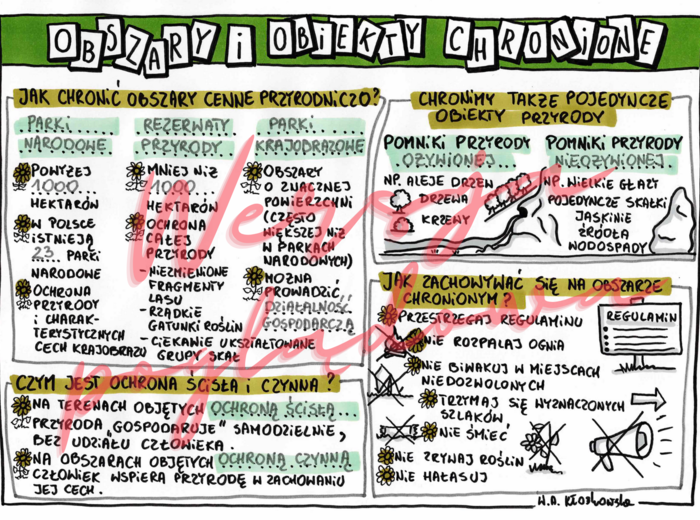 OBSZARY i OBiEKTY CHRONiONE
JAK CHRONIĆ OBSZARY CENNE PRZYRODNICZO?
PARKI
NARODOWE
POWYŻEJ
1000...
HEKTARÓW
W POLSCE
iSTNIEJĄ
23... PARKI
NARODOWE
OCHRONA
PRZYRODY
i CHARAK-
TERYSTYCZNYCH
CECH KRAJOBRAZU
REZERWATY
PRZYRODY
MNIEJ NIŻ
1000...
HEKTARÓW
OCHRONA
CAŁEJ
PRZYRODY
- NIEZMIENIONE
FRAGMENTY
LASU
- RZADKIE
GATUNKI ROŚLIN
- CIEKAWIE UKSZTAŁTOWANE
GRUPY SKAŁ
PARKI
KRAJOBRAZOWE
OBSZARY
O ZNACZNEJ
POWIERZCHNI
(CZĘSTO
WIĘKSZEJ NIŻ
W PARKACH
NARODOWYCH)
MOŻNA
PROWADZIĆ
DZIAŁALNOŚĆ
GOSPODARCZĄ
CZYM JEST OCHRONA ŚCISŁA i CZYNNA?
NA TERENACH OBJĘTYCH OCHRONĄ ŚCISŁĄ...
PRZYRODA "GOSPODARUJE" SAMODZIELNIE,
BEZ UDZIAŁU CZŁOWIEKA.
NA OBSZARACH OBJĘTYCH OCHRONĄ CZYNNĄ
CZŁOWIEK WSPIERA PRZYRODĘ W ZACHOWANIU
JEJ CECH.
CHRONIMY TAKŻE POJEDYNCZE
OBIEKTY PRZYRODY
POMNIKI PRZYRODY
OŻYWIONEJ...
NP. ALEJE DRZEW
DRZEWA
KRZEWY
POMNIKI PRZYRODY
NIEOŻYWIONEJ...
NP. WIELKIE GŁAZY
POJEDYNCZE SKAŁKI
JASKINIE
ŹRÓDŁA
WODOSPADY
JAK ZACHOWYWAĆ SIĘ NA OBSZARZE
CHRONIONYM?
PRZESTRZEGAJ REGULAMINU
NIE ROZPALAJ OGNIA
NIE BIWAKUJ W MIEJSCACH
NIEDOZWOLONYCH
TRZYMAJ SIĘ WYZNACZONYCH
SZLAKÓW
NIE ŚMIEĆ
NIE ZRYWAJ ROŚLIN
NIE HAŁASUJ
REGULAMIN
Wersja
poglądowa